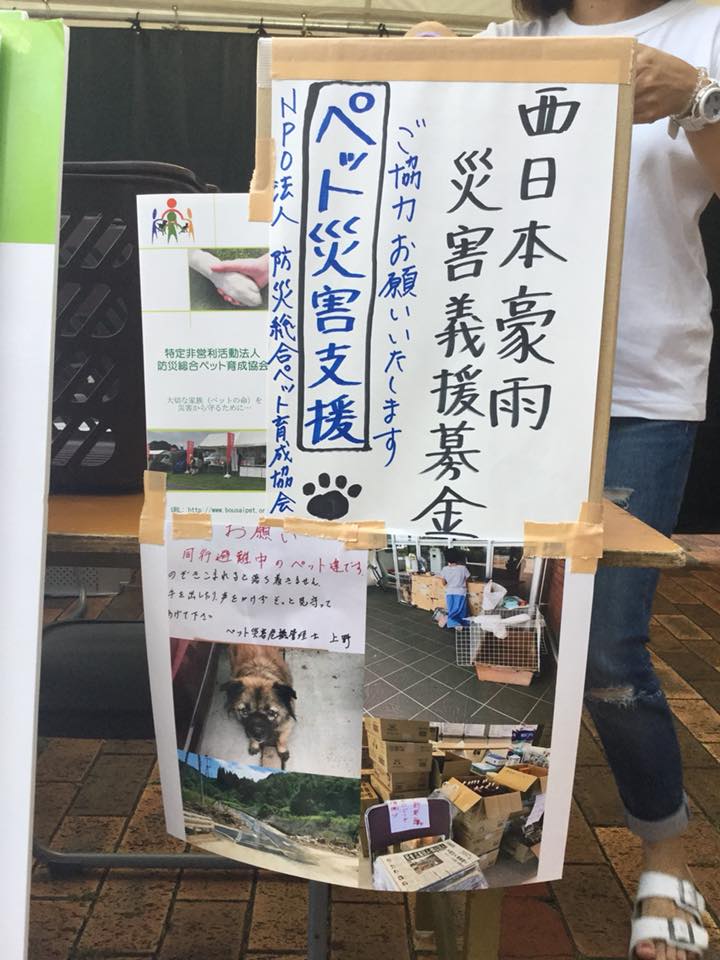 西日本豪雨
災害義援募金
ご協力お願いいたします
ペット災害支援
NPO法人 防災総合ペット育成協会
特定非営利活動法人
防災総合ペット育成協会
大切な家族（ペットの命）を
災害から守るために…
URL: http://www.bousaipet.or
お願い
同行避難中のペット達です。
のぞきこまれると落ち着きません
手を出したり、声をかけずそっと見守って
あげて下さい
ペット災害危機管理士 上野